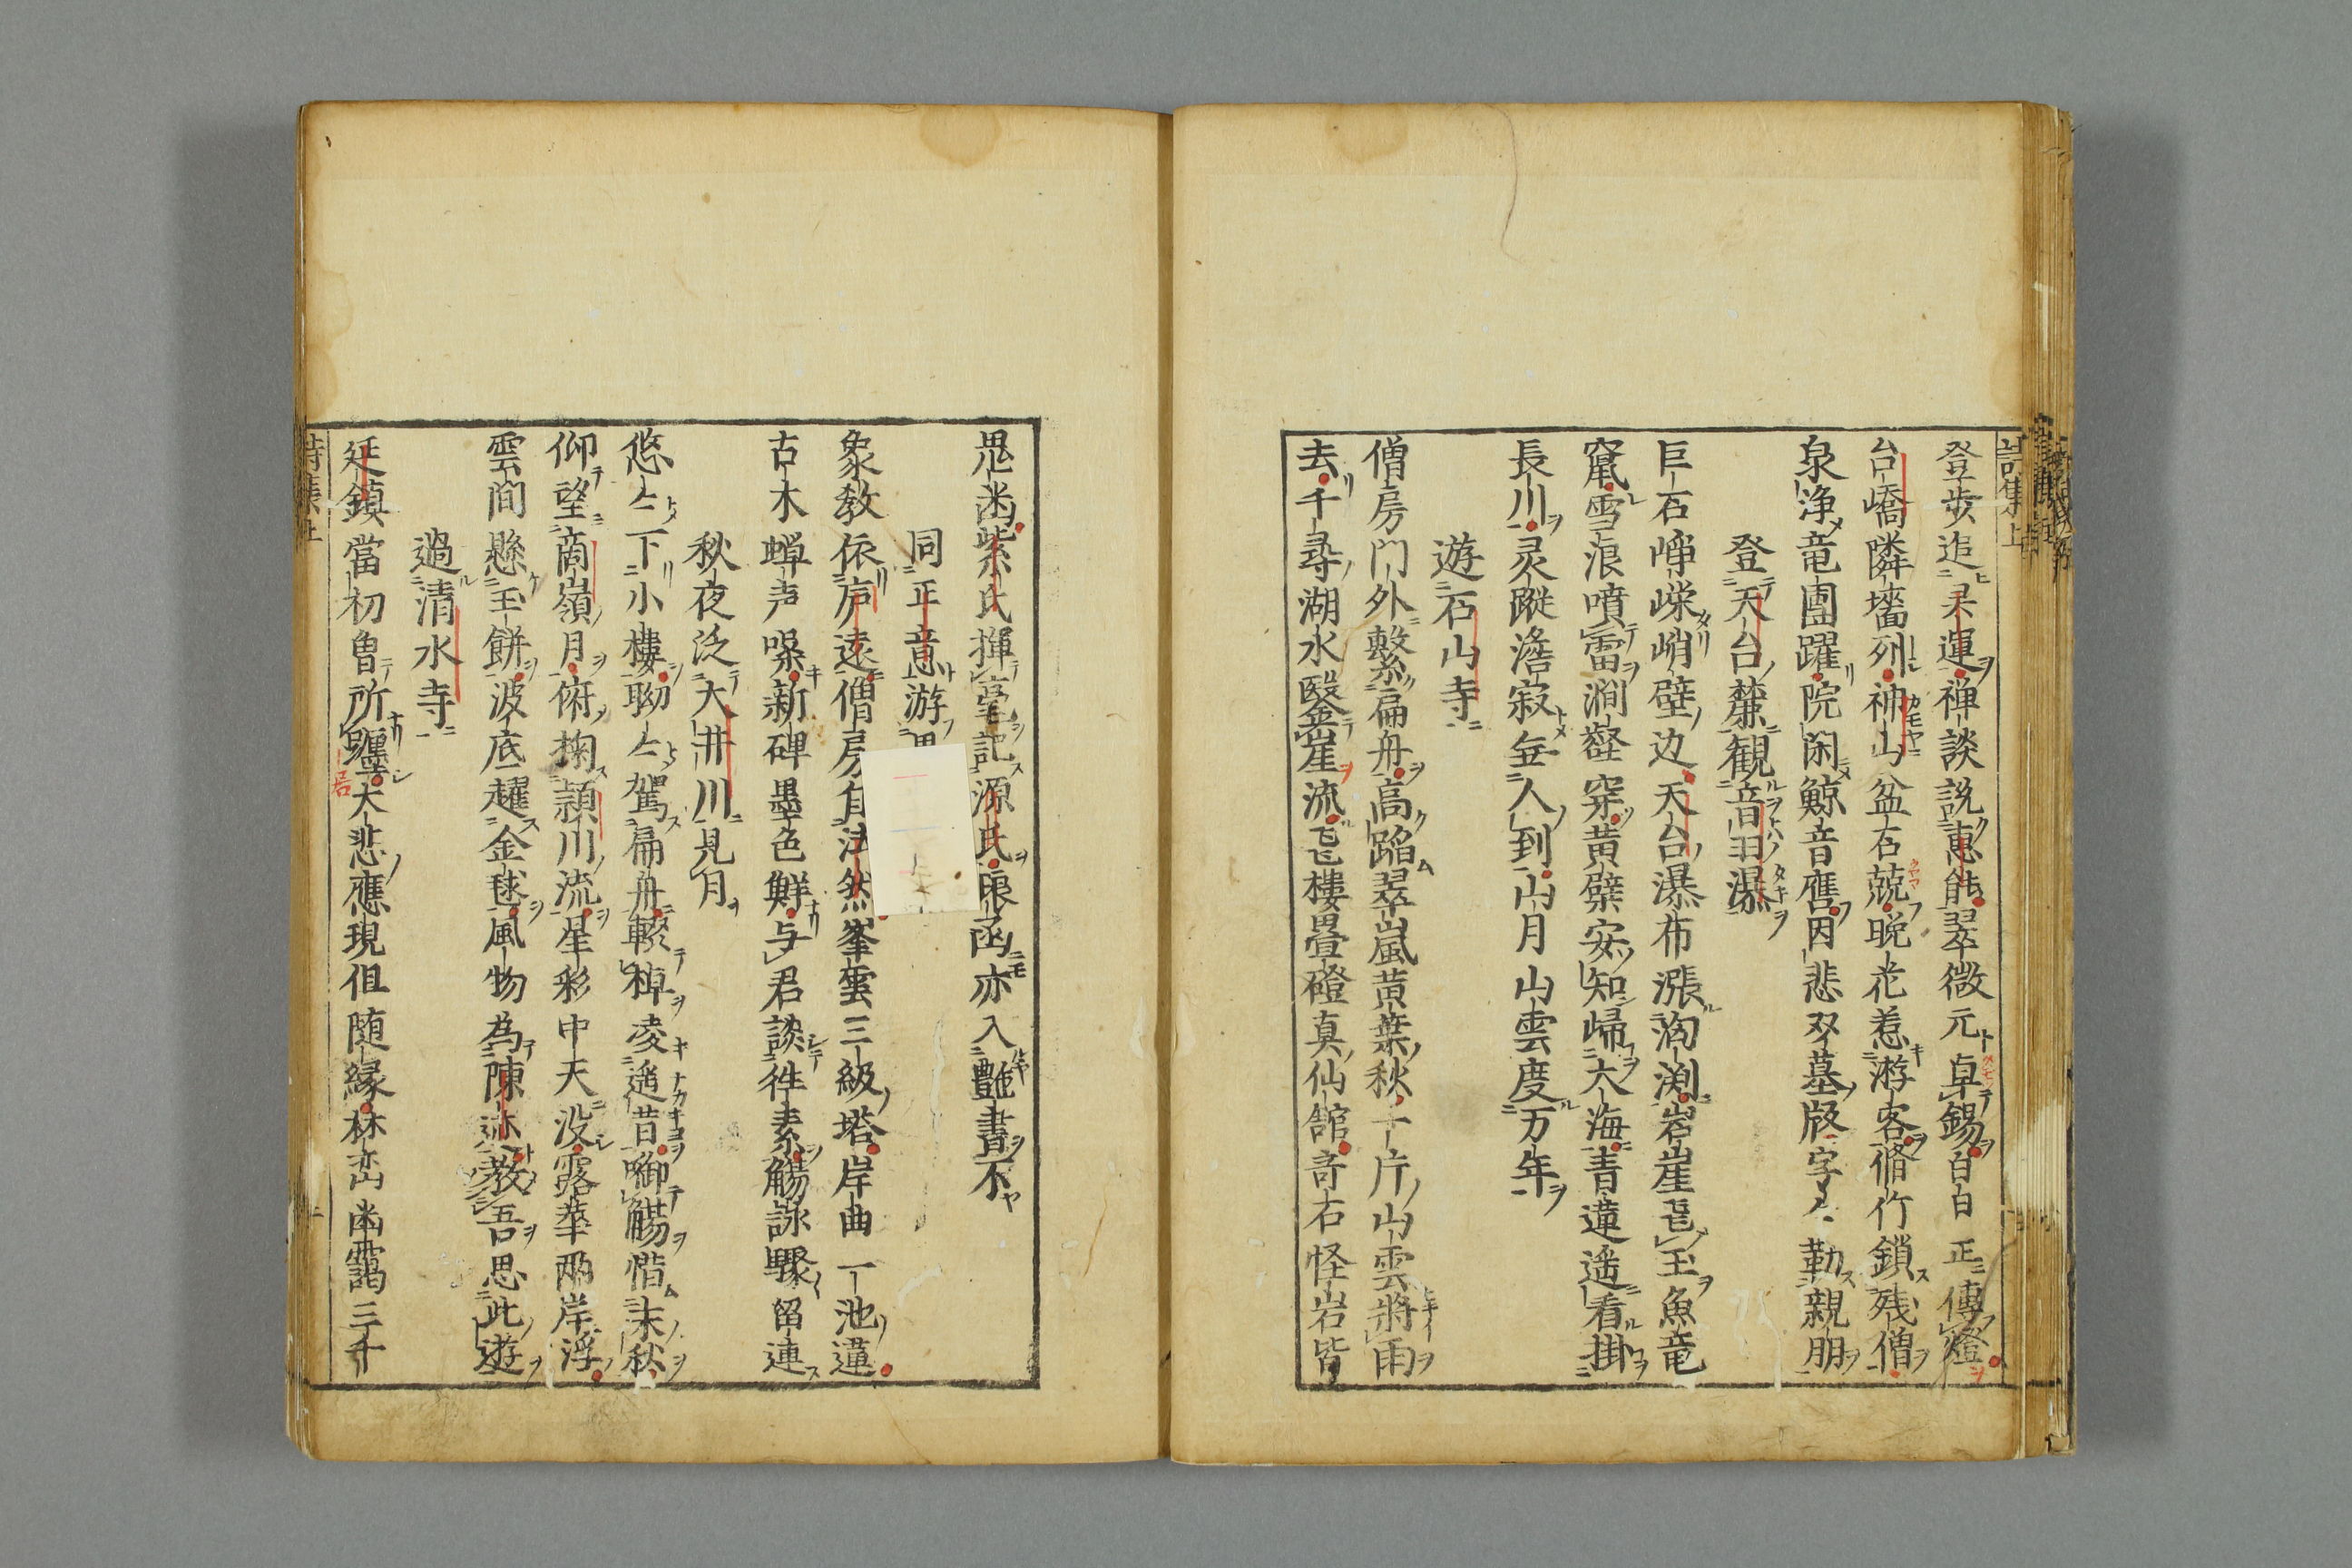 登歩追杲運禅談説恵能翠微元卓錫白白正傳燈
台嶠隣墻列神山盆石兢晩花惹游客脩竹鎖残僧
泉浄竜團躍院閑鯨音應因悲双墓牌字〻勒親朋
登天台麓観音羽瀑
巨石崢嶸峭壁辺天台瀑布漲洶渕岩崖乱玉魚竜
竄雪浪噴雷澗壑穿黄檗安知帰大海青蓮遥看掛
長川灵蹤澹寂無人到山月山雲度万年
遊石山寺
僧房門外繋扁舟高蹈翠嵐黄葉秋十片山雲將雨
去千尋湖水鑿崖流飛樓畳磴真仙舘奇石怪岩皆
鬼迷紫氏揮毫記源氏眼函亦入艶書不
同正意游
象教依声遠僧房自法然峯雲三級塔岸曲一池蓮
古木蝉声噪新碑墨色鮮与君談往素觴詠驟留連
秋夜泛大井川見月
悠〻下小樓聊〻駕扁舟輟棹凌遥昔啣觴惜末秋
仰望商嶺月俯掬頴川流星彩中天没露華兩岸浮
雲間懸玉餅波底趯金毬風物為陳迹教吾思此遊
過清水寺
延鎮當初曽所躔大悲應現但随縁林峦幽靄三千
詩集上